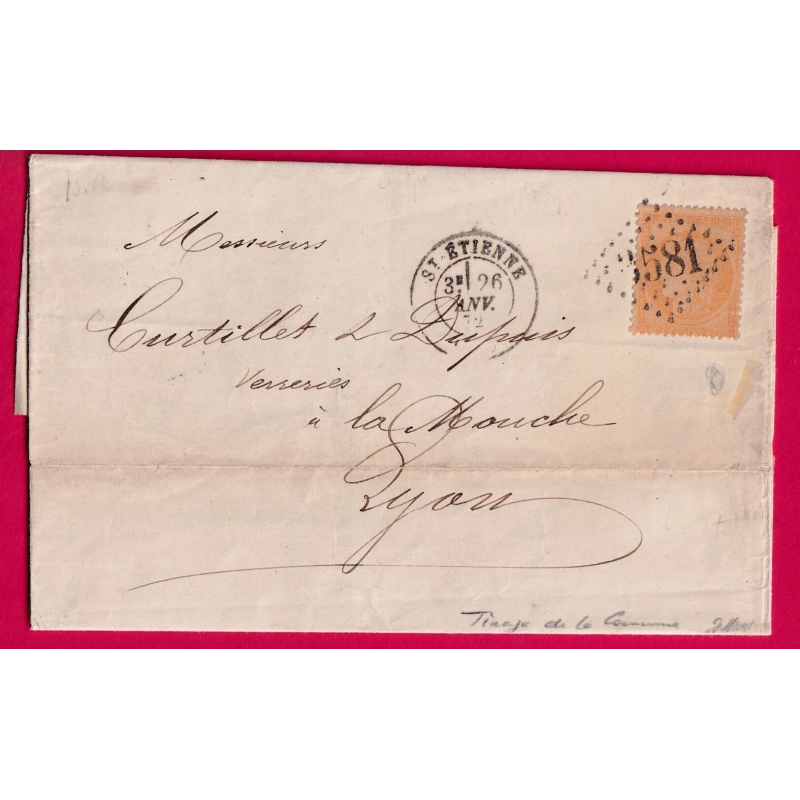 Messieurs
ST-ETIENNE
3E 26
JANV.
72
3581
Curtillet & Dupuis
Verreries
à la Mouche
Lyon
Tirage de la Commune